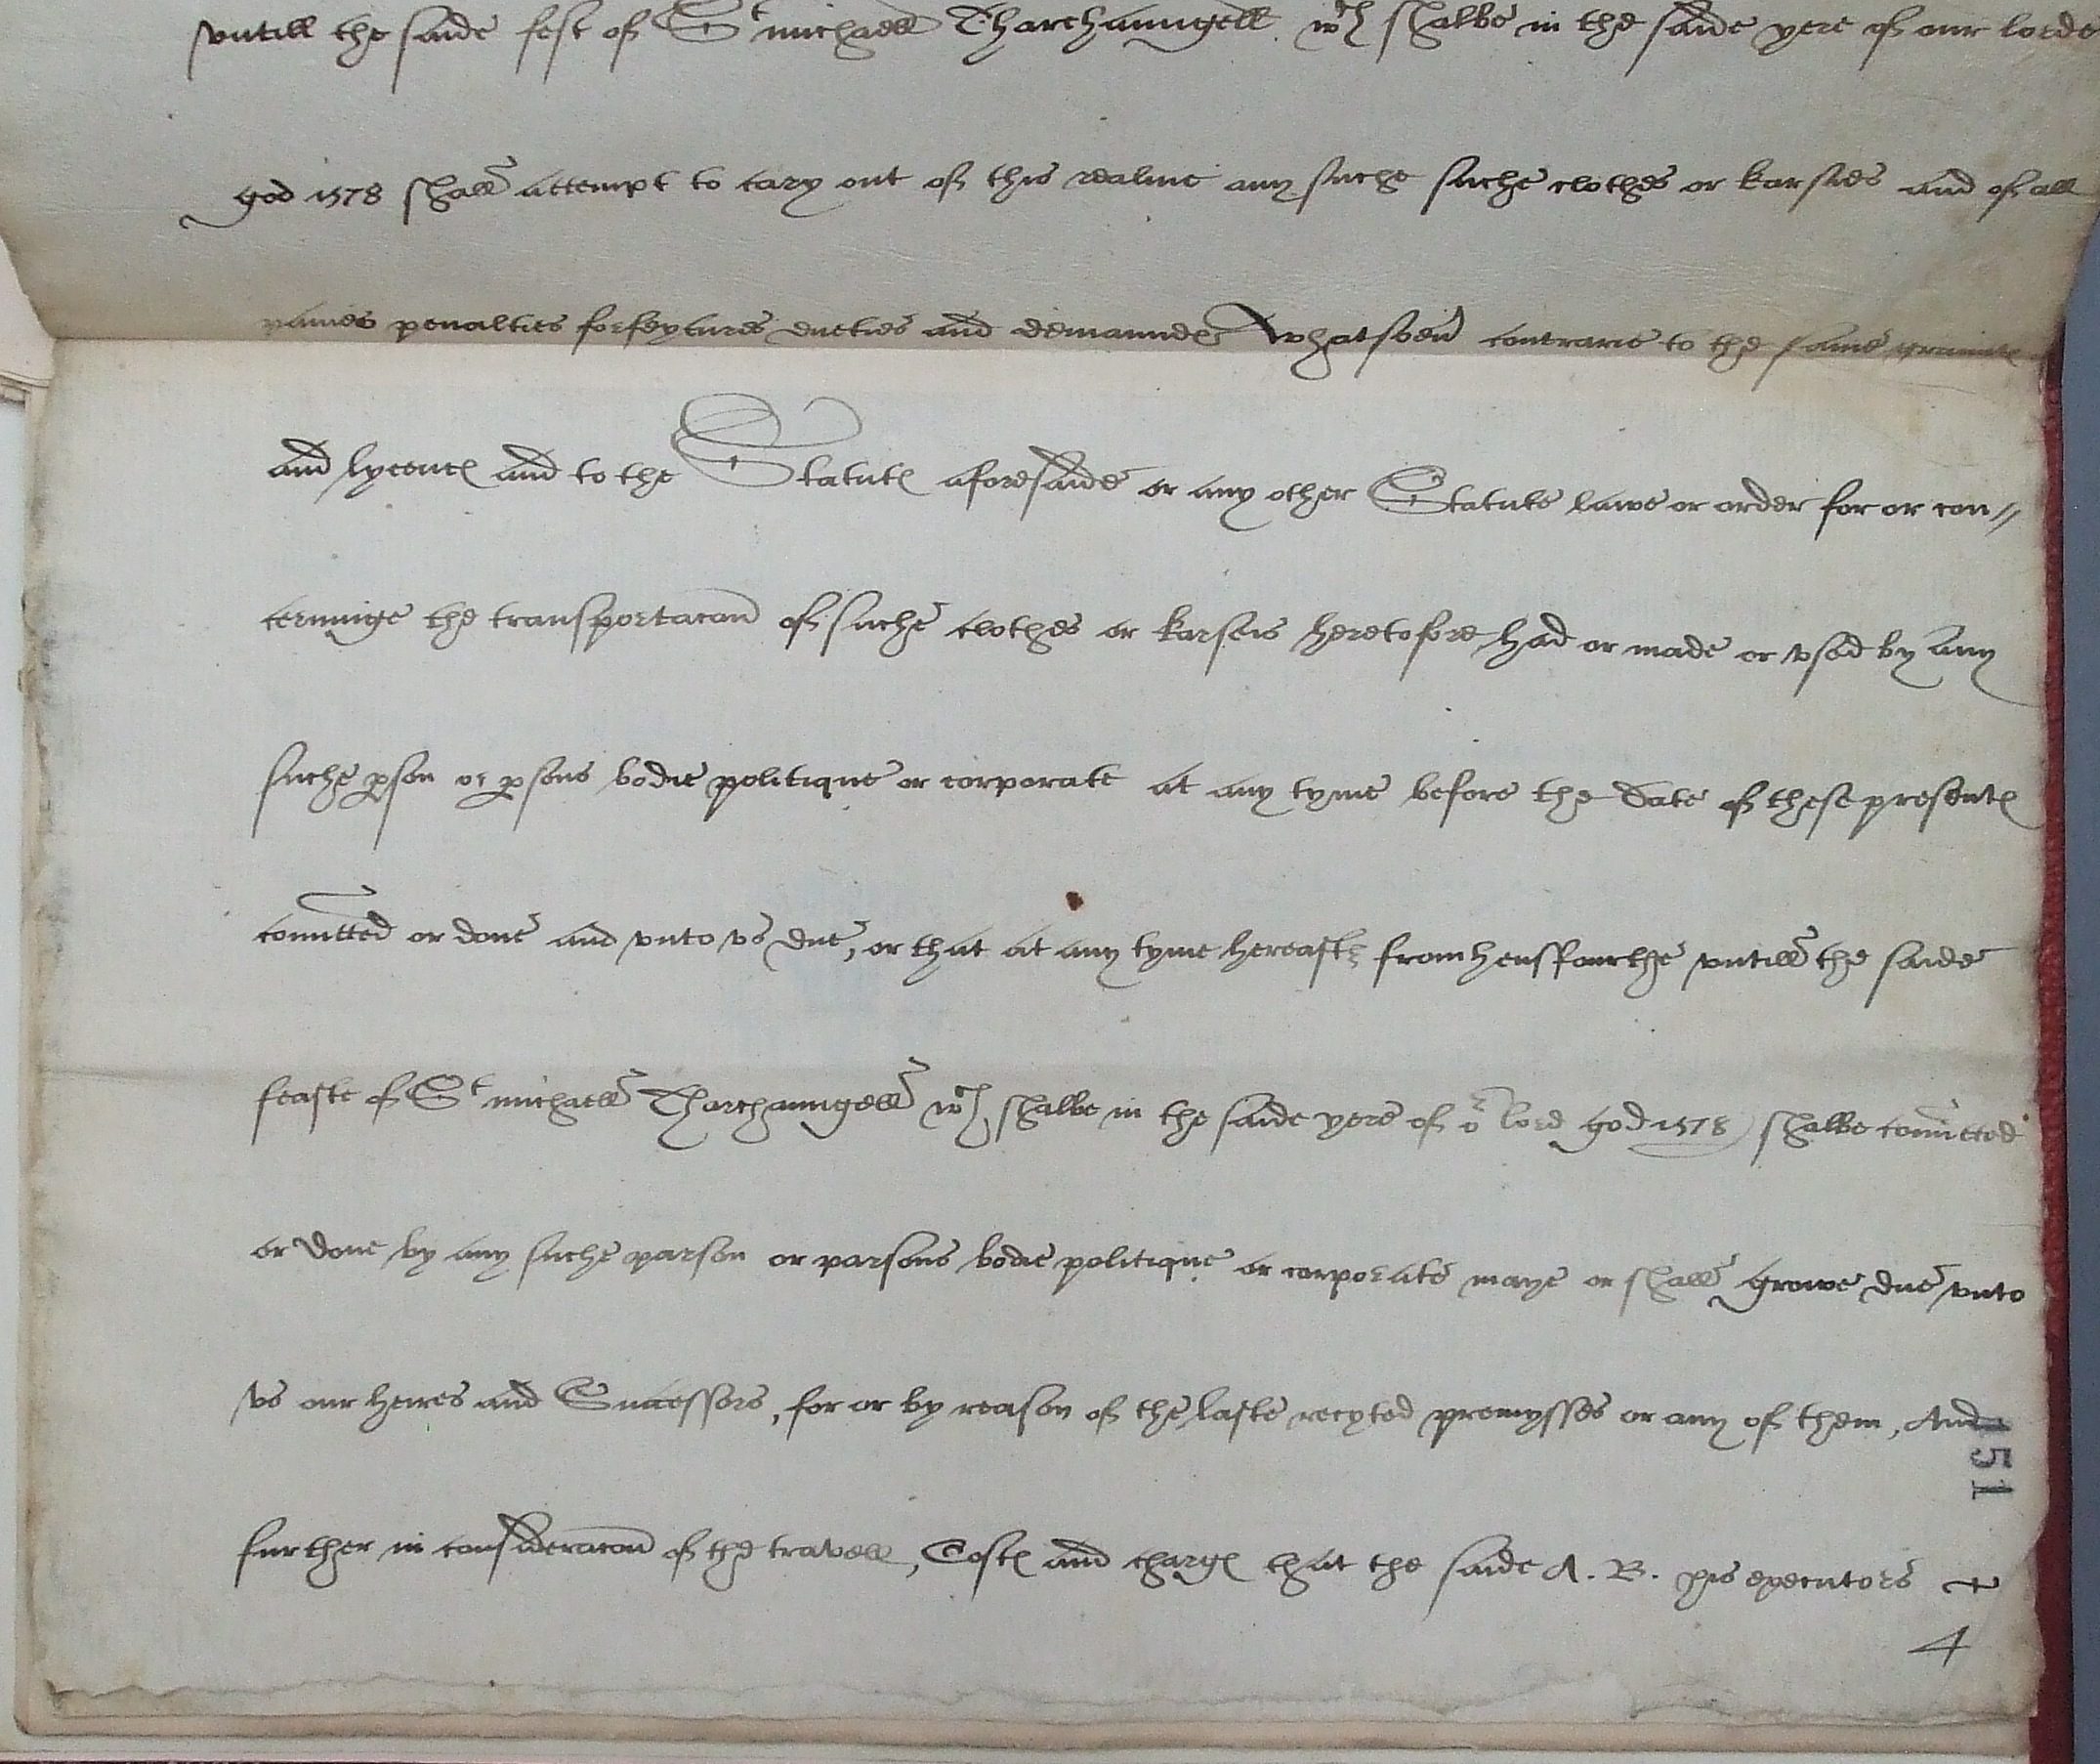 vntill the saide fest of St michaell Tharchaungell wch shalbe in the saide yere of our lorde
god 1578 shall attempt to cary out of this realme any suche suche clothes or karsies and of all
paines penalties forfeytures dueties and demaundes whatsoeu contrarie to the same graunte
and lycence and to the Statutes aforesaide or any other Statute lawe or order for or con//
cerninge the transportacon of suche clothes or karseis heretofore had or made or vsed by any
suche pson or psons bodie politique or corporate at any tyme before the date of these presentes
comitted or done and vnto vs due, or that at any tyme hereaft from hensfourthe vntill the saide
feaste of St michaell Tharchaungell wch shalbe in the saide yere of or lord god 1578 shalbe comitted
or done by any suche parson or parsons bodie politique or corporate maye or shall growe due vnto
vs our heires and Successors, for or by reason of the laste recyted premysses or any of them, And
further in consideracon of the travell, Costes and charges that the saide A. B. his executors &
4
151